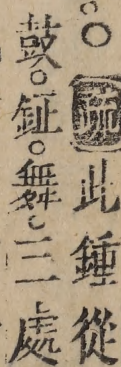 ○疏此鍾從
鼓。鉦。舞。三處